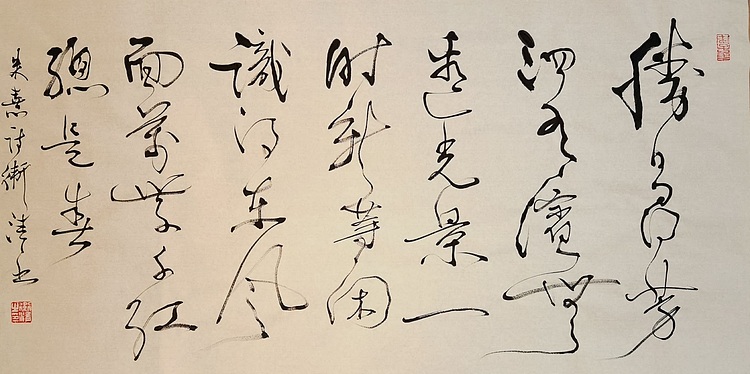 勝日尋芳
泗水濱無
邊光景一
時新等閑
識得東風
面萬紫千紅
總是春
朱熹詩